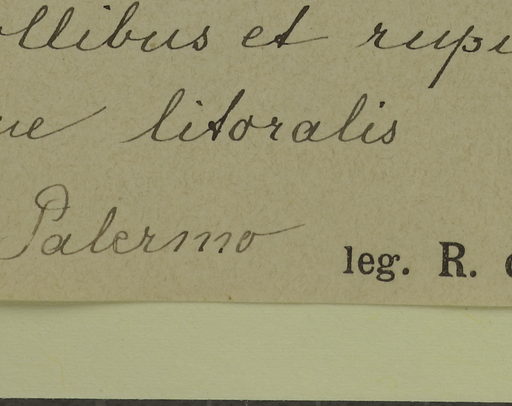 ollibus et rupi
ue litoralis
Palermo
leg. R.